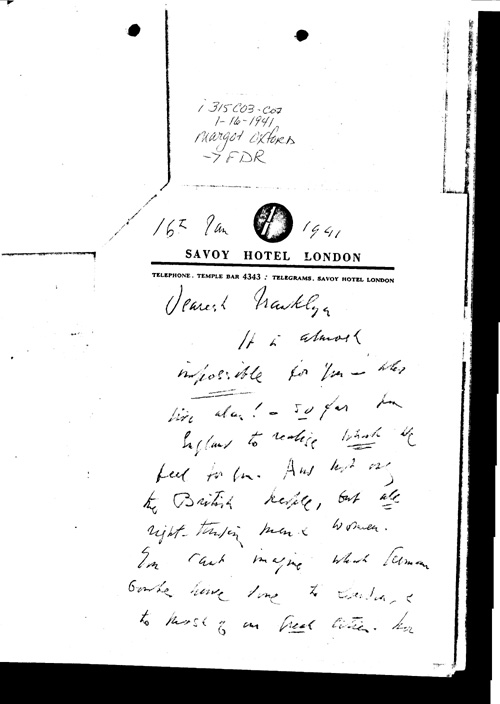 315C03-C07
1-16-1941
Margot Oxford
→ FDR
16th Jan 1941
SAVOY HOTEL LONDON
TELEPHONE. TEMPLE BAR 4343 : TELEGRAMS. SAVOY HOTEL LONDON
Dearest Franklyn
It is almost
impossible for you — who
live alas! — so far from
England to realise what we
feel for you. And not only
the British people, but all
right-thinking men & women.
You can't imagine what German
bombs have done to London, &
to most of our great cities.